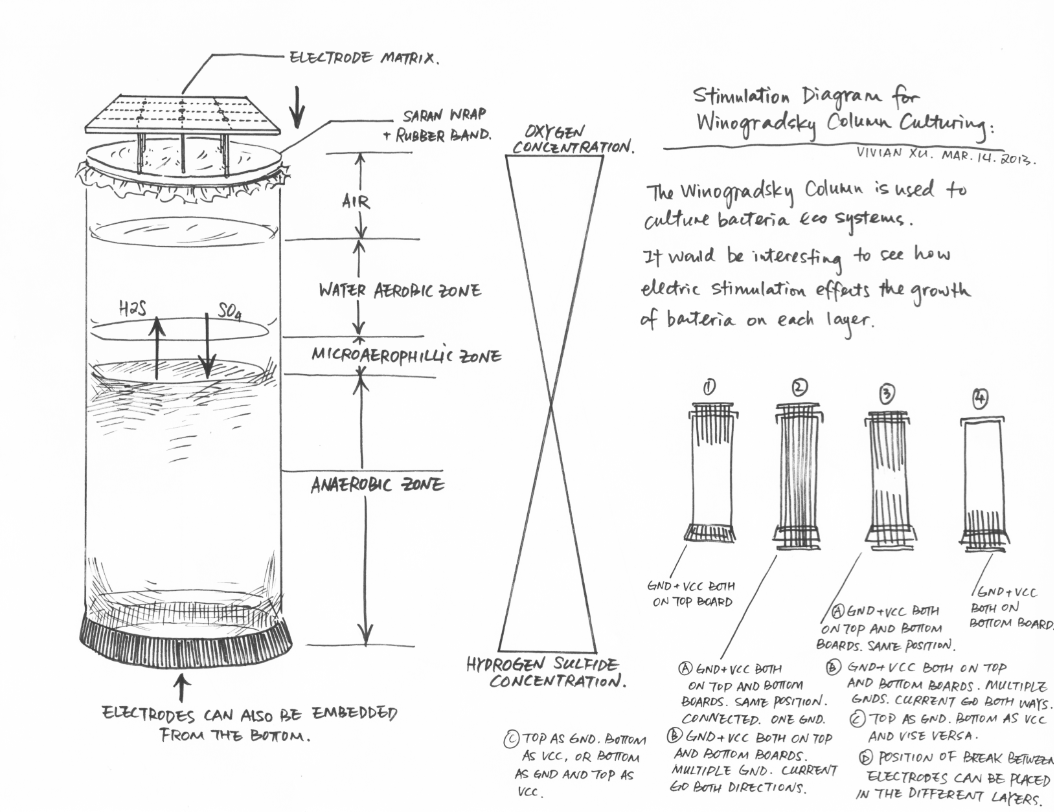 ELECTRODE MATRIX.
SARAN WRAP
+ RUBBER BAND.
AIR
WATER AEROBIC ZONE
H2S
SO4
MICROAEROPHILLIC ZONE
ANAEROBIC ZONE
ELECTRODES CAN ALSO BE EMBEDDED
FROM THE BOTTOM.
OXYGEN
CONCENTRATION.
HYDROGEN SULFIDE
CONCENTRATION.
Stimulation Diagram for
Winogradsky Column Culturing:
VIVIAN XU. MAR. 14. 2013.
The Winogradsky Column is used to
culture bacteria Eco systems.
It would be interesting to see how
electric stimulation effects the growth
of bacteria on each layer.
1
2
3
4
GND+VCC BOTH
ON TOP BOARD
Ⓐ GND+VCC BOTH
ON TOP AND BOTTOM
BOARDS. SAME POSITION.
CONNECTED. ONE GND.
Ⓑ GND+VCC BOTH ON TOP
AND BOTTOM BOARDS.
MULTIPLE GND. CURRENT
GO BOTH DIRECTIONS.
Ⓒ TOP AS GND. BOTTOM
AS VCC, OR BOTTOM
AS GND AND TOP AS
VCC.
Ⓐ GND+VCC BOTH
ON TOP AND BOTTOM
BOARDS. SAME POSITION.
Ⓑ GND+VCC BOTH ON TOP
AND BOTTOM BOARDS. MULTIPLE
GNDS. CURRENT GO BOTH WAYS.
Ⓒ TOP AS GND. BOTTOM AS VCC
AND VISE VERSA.
Ⓓ POSITION OF BREAK BETWEEN
ELECTRODES CAN BE PLACED
IN THE DIFFERENT LAYERS.
GND+VCC
BOTH ON
BOTTOM BOARD.